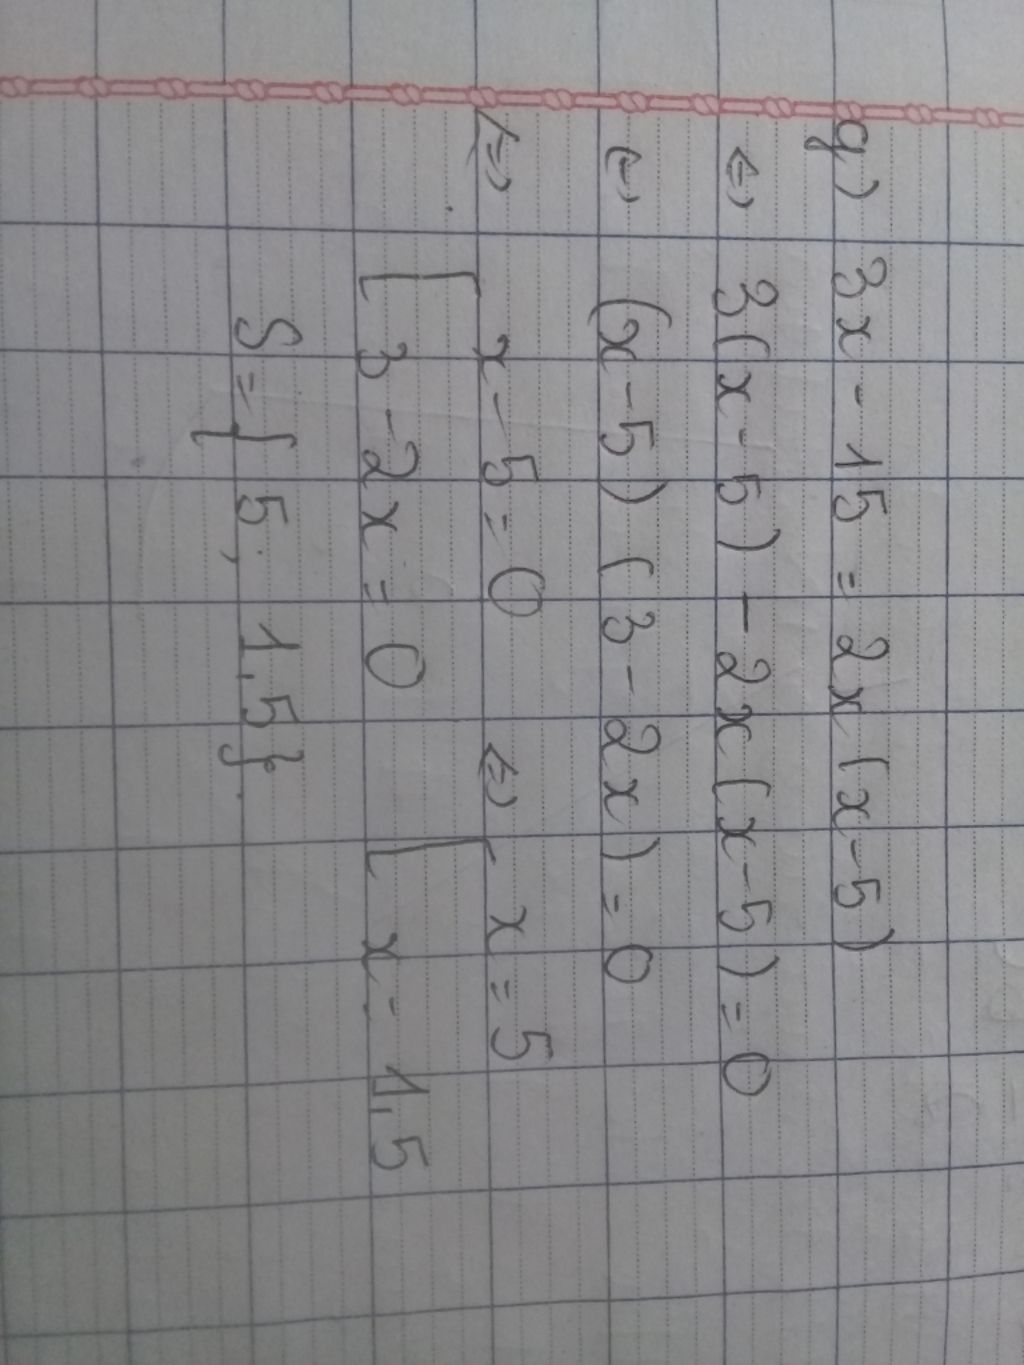 g) 3x - 15 = 2x(x-5)
<=> 3(x-5) - 2x(x-5) = 0
<=> (x-5)(3-2x) = 0
<=> [ x-5=0 <=> [ x=5
[ 3-2x=0 [ x=1,5
S={5; 1,5}.